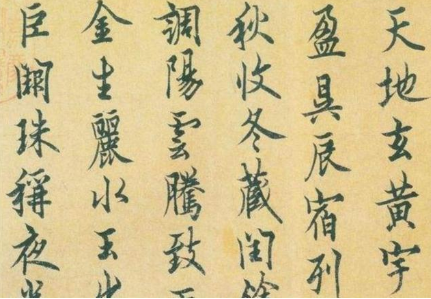 天地玄黃宇
盈昃辰宿列
秋收冬藏閏餘
調陽雲騰致
金生麗水玉出
巨闕珠稱夜光